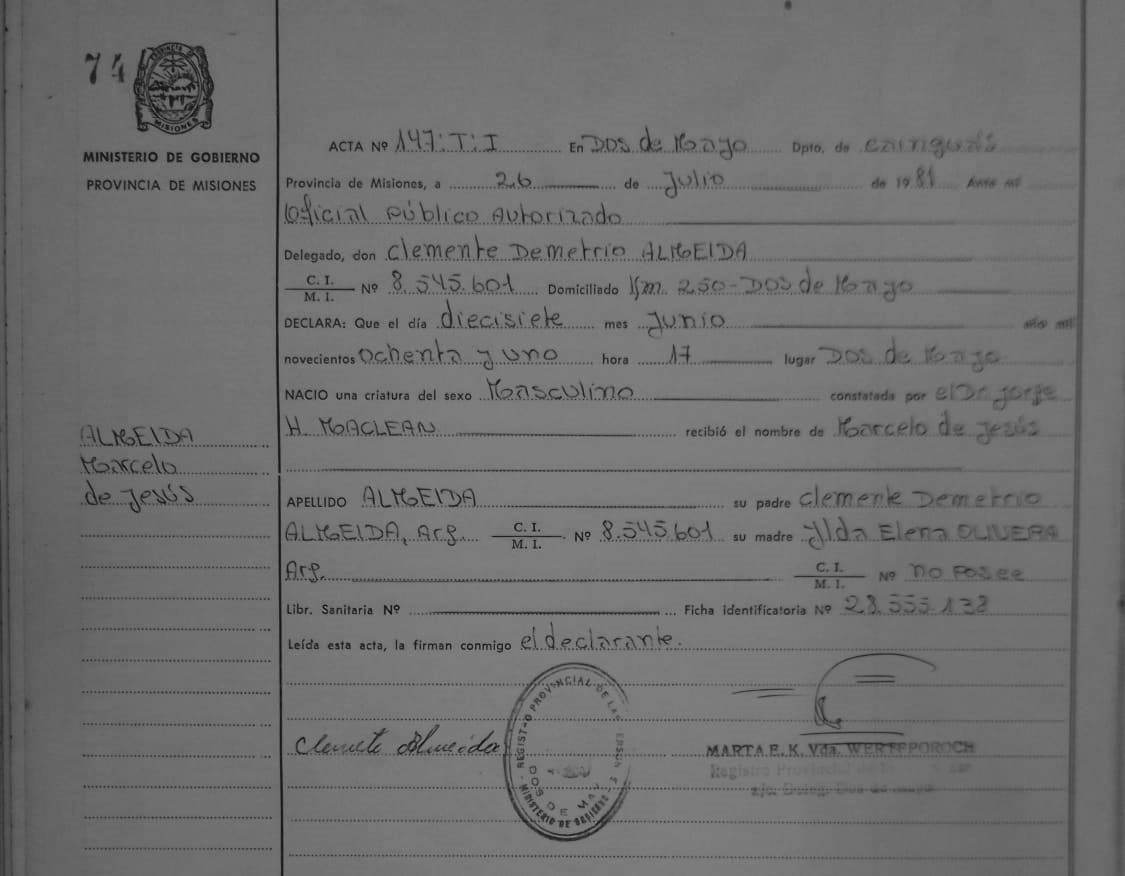 74
MISIONES
MINISTERIO DE GOBIERNO
PROVINCIA DE MISIONES
ALMEIDA
Marcelo
de Jesús
ACTA Nº 147:T:I En Dos de Mayo Dpto. de Cainguás
Provincia de Misiones, a 26 de Julio de 1981 Ante mí
Oficial Público Autorizado
Delegado, don Clemente Demetrio ALMEIDA
C. I. / M. I. Nº 8.545.601 Domiciliado Km. 250-Dos de Mayo
DECLARA: Que el día diecisiete mes Junio año mil
novecientos Ochenta y uno hora 17 lugar Dos de Mayo
NACIO una criatura del sexo Masculino constatada por el Dr Jorge
H. MACLEAN recibió el nombre de Marcelo de Jesús
APELLIDO ALMEIDA su padre Clemente Demetrio
ALMEIDA, Arg. C. I. / M. I. Nº 8.545.601 su madre Ylda Elena OLIVERA
Arg. C. I. / M. I. Nº no Posee
Libr. Sanitaria Nº Ficha identificatoria Nº 28.555.138
Leída esta acta, la firman conmigo el declarante.
Clemente Almeida
REGISTRO PROVINCIAL DE LAS PERSONAS
DOS DE MAYO
MINISTERIO DE GOBIERNO
MARTA E. K. Vda. WERFEPOROCH
Registro Provincial de